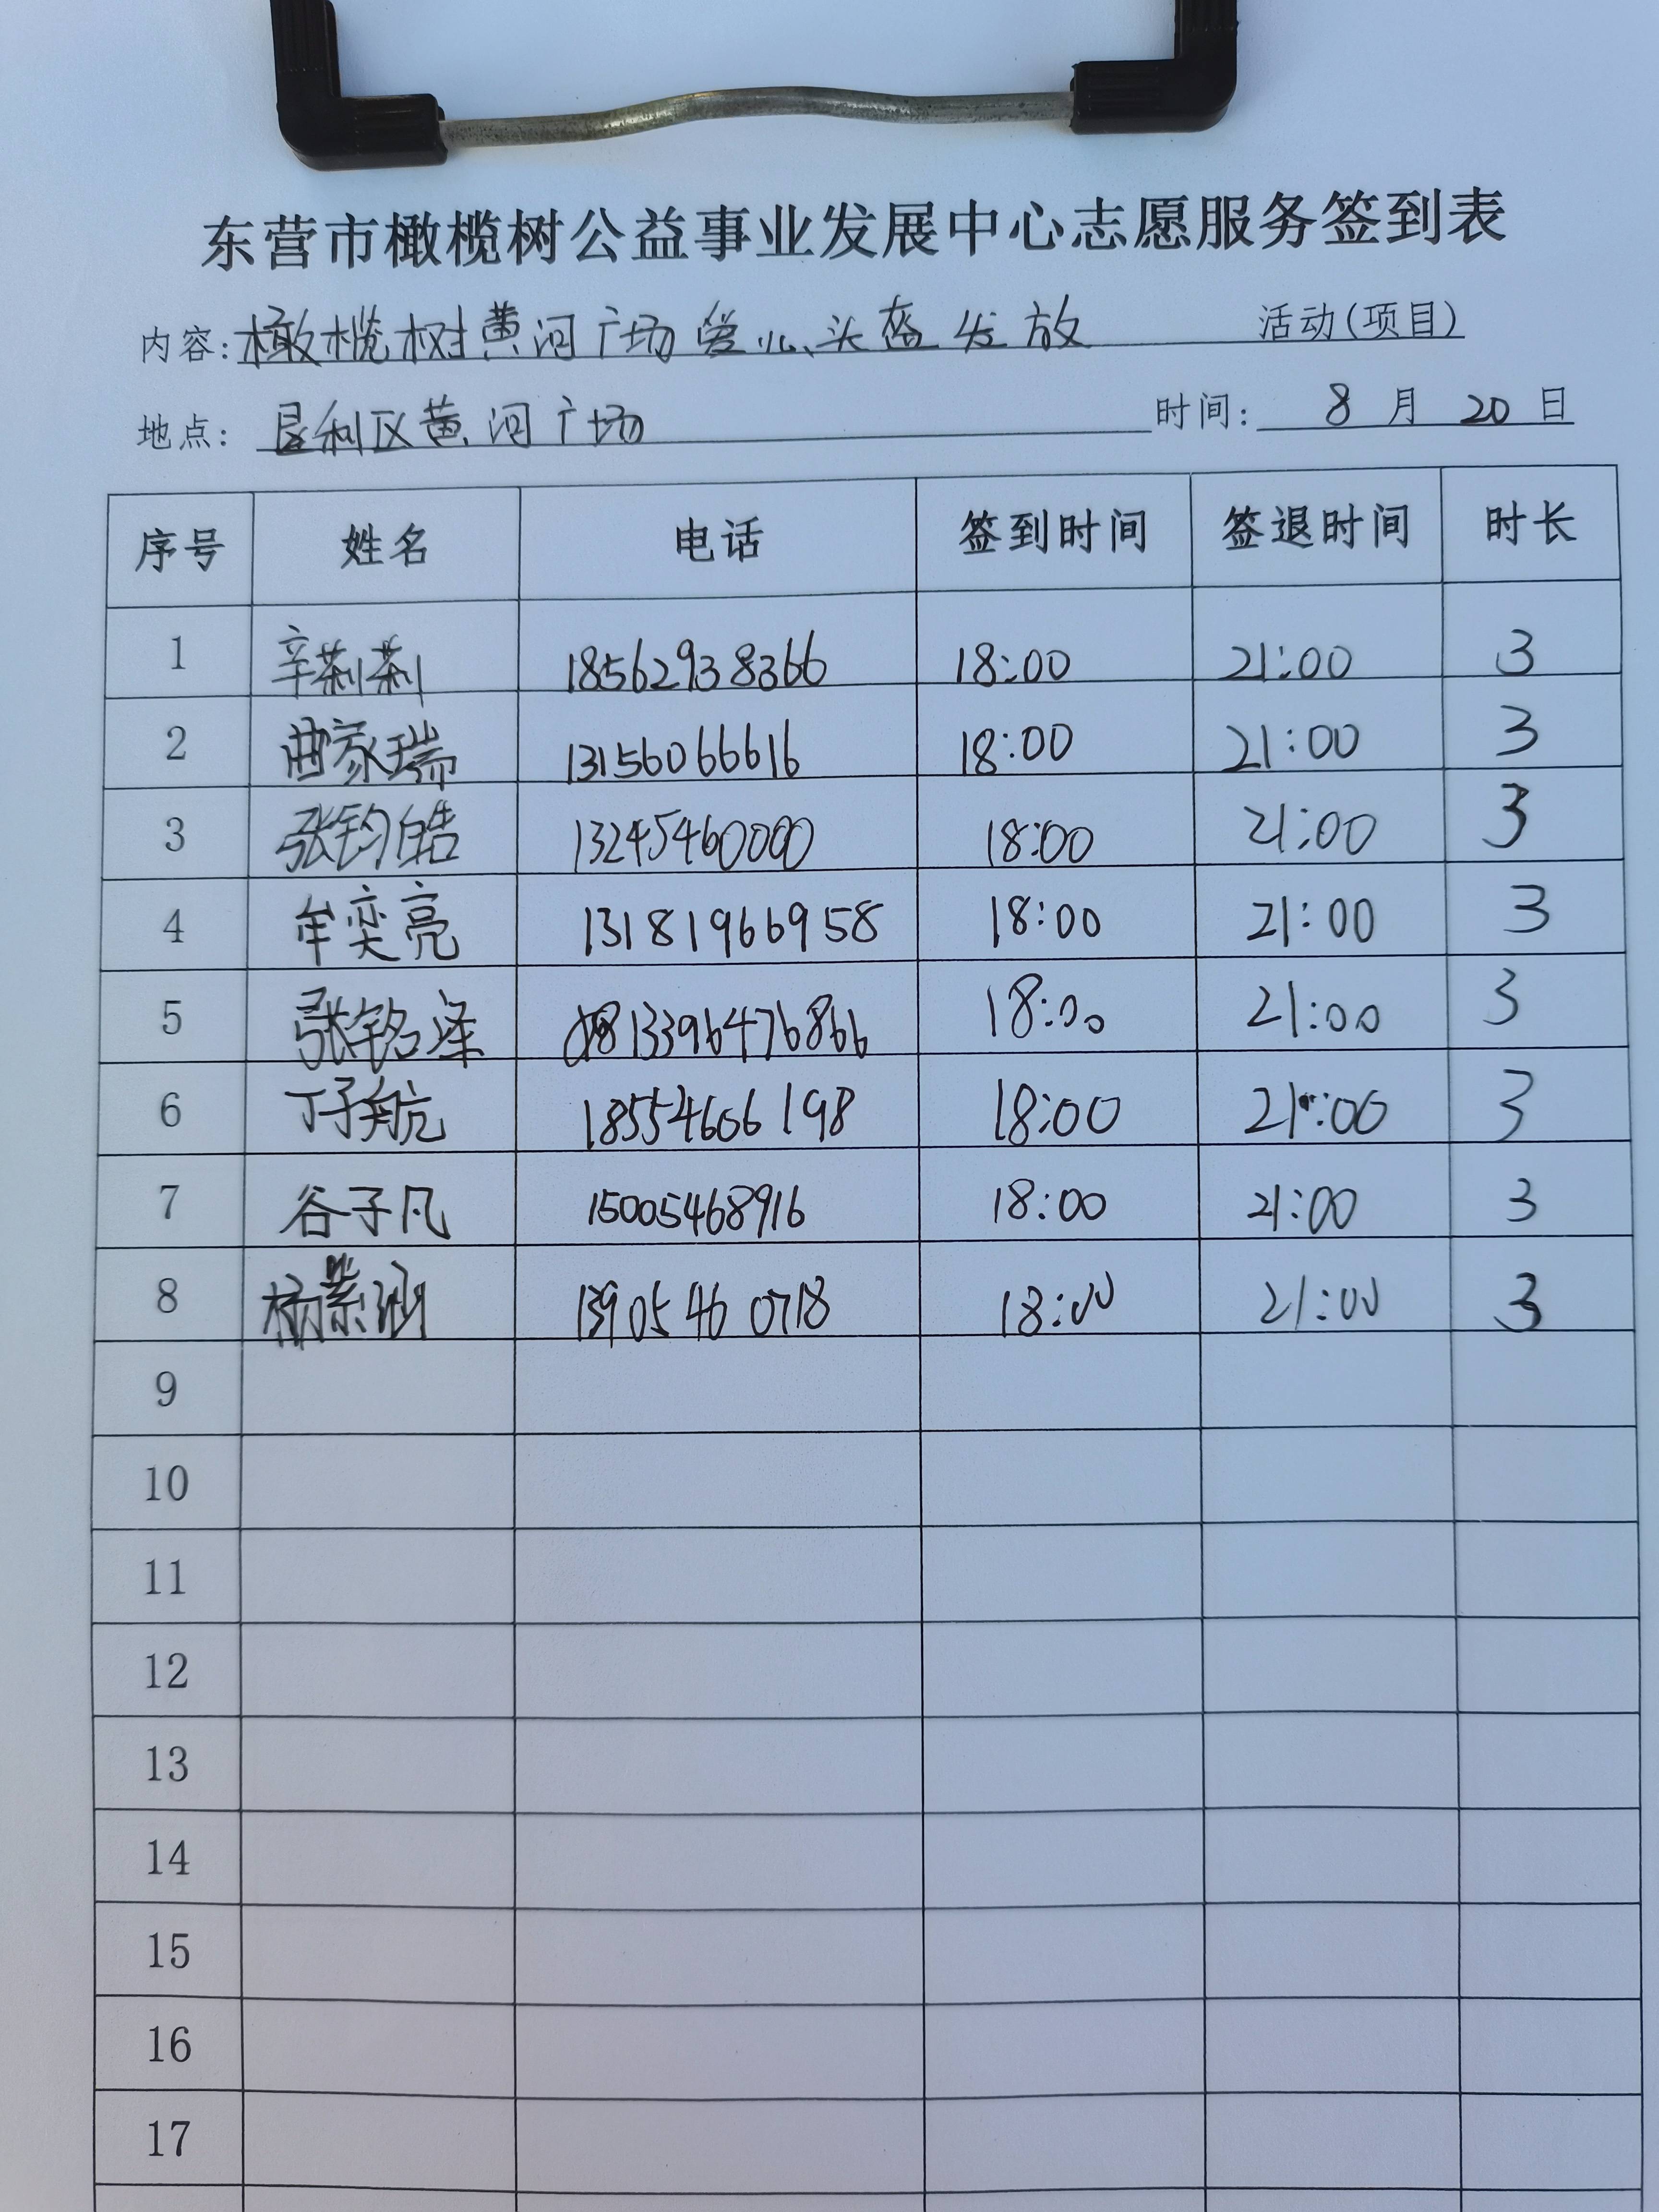 东营市橄榄树公益事业发展中心志愿服务签到表
内容:橄榄树黄河广场爱心头盔发放 活动(项目)
地点: 垦利区黄河广场 时间: 8 月 20 日
序号 姓名 电话 签到时间 签退时间 时长
1 辛莉莉 18562938366 18:00 21:00 3
2 曲家瑞 13156066616 18:00 21:00 3
3 张钧皓 13245460000 18:00 21:00 3
4 牟奕亮 13181966958 18:00 21:00 3
5 张铭泽 13396476866 18:00 21:00 3
6 丁子航 18554606198 18:00 21:00 3
7 谷子凡 15005468916 18:00 21:00 3
8 涵 13905460718 18:00 21:00 3
9
10
11
12
13
14
15
16
17